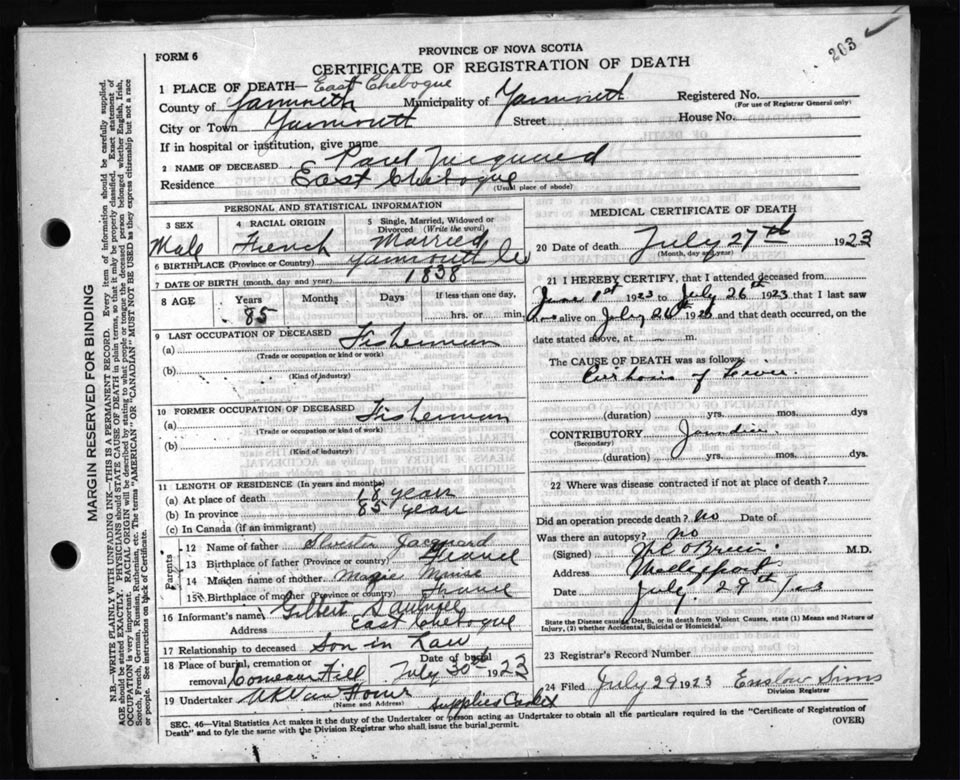 203
FORM 6
PROVINCE OF NOVA SCOTIA
CERTIFICATE OF REGISTRATION OF DEATH
1 PLACE OF DEATH— East Chebogue
County of Yarmouth Municipality of Yarmouth Registered No.
(For use of Registrar General only)
City or Town Yarmouth Street House No.
If in hospital or institution, give name
2 NAME OF DECEASED Paul Jacquard
Residence East Chebogue
(Usual place of abode)
PERSONAL AND STATISTICAL INFORMATION
3 SEX
Male
4 RACIAL ORIGIN
French
5 Single, Married, Widowed or Divorced (Write the word)
Married
6 BIRTHPLACE (Province or Country) Yarmouth Co
7 DATE OF BIRTH (month, day and year) 1838
8 AGE Years Months Days If less than one day,
85 hrs. or min.
9 LAST OCCUPATION OF DECEASED
(a) Fisherman
(Trade or occupation or kind or work)
(b)
(Kind of industry)
10 FORMER OCCUPATION OF DECEASED
(a) Fisherman
(Trade or occupation or kind of work)
(b)
(Kind of industry)
11 LENGTH OF RESIDENCE (In years and months)
(a) At place of death 18 years
(b) In province 85 years
(c) In Canada (if an immigrant)
Parents
12 Name of father Jacquard
13 Birthplace of father (Province or country)
14 Maiden name of mother
15 Birthplace of mother (Province or country)
16 Informant's name Gilbert
Address East Chebogue
17 Relationship to deceased Son in Law
18 Place of burial, cremation or removal Comeaus Hill
Date of burial July 30th 1923
19 Undertaker Van Horne
(Name and Address) Supplies Casket
MEDICAL CERTIFICATE OF DEATH
20 Date of death July 27th 1923
(Month, day and year)
21 I HEREBY CERTIFY, that I attended deceased from
June 1st 1923 to July 26th 1923 that I last saw
alive on July 26th 1923 and that death occurred, on
date stated above, at — m.
The CAUSE OF DEATH was as follows
Cirrhosis of Liver.
(duration) yrs. mos. dys
CONTRIBUTORY Jaundice
(Secondary)
(duration) yrs. mos. dys.
22 Where was disease contracted if not at place of death?
Did an operation precede death? no Date of
Was there an autopsy? no
(Signed) O'Brien M.D.
Address
Date July 29th/23
State the Disease causing Death, or in death from Violent Causes, state (1) Means and Nature of
Injury, (2) whether Accidental, Suicidal or Homicidal.
23 Registrar's Record Number
24 Filed July 29 1923 Enslow Sims
Division Registrar
SEC. 46—Vital Statistics Act makes it the duty of the Undertaker or person acting as Undertaker to obtain all the particulars required in the "Certificate of Registration of
Death" and to fyle the same with the Division Registrar who shall issue the burial permit.
(OVER)
MARGIN RESERVED FOR BINDING
N.B.—WRITE PLAINLY WITH UNFADING INK—THIS IS A PERMANENT RECORD. Every item of information should be carefully supplied.
AGE should be stated EXACTLY. PHYSICIANS should STATE CAUSE OF DEATH in plain terms, so that it may be properly classified. Exact statement of
OCCUPATION is very important. RACIAL ORIGIN will be described by stating to what people or tongue the deceased person belonged whether English, Irish,
Scotch, French, German, Russian, Ruthenian, etc. The terms "AMERICAN" OR "CANADIAN" MUST NOT BE USED as they express citizenship but not a race
or people. See instructions on back of Certificate.